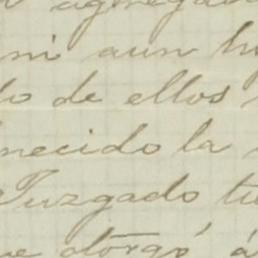 agregad
ni aun h
do de ellos
necido la
Juzgado tu
ue otorgó á